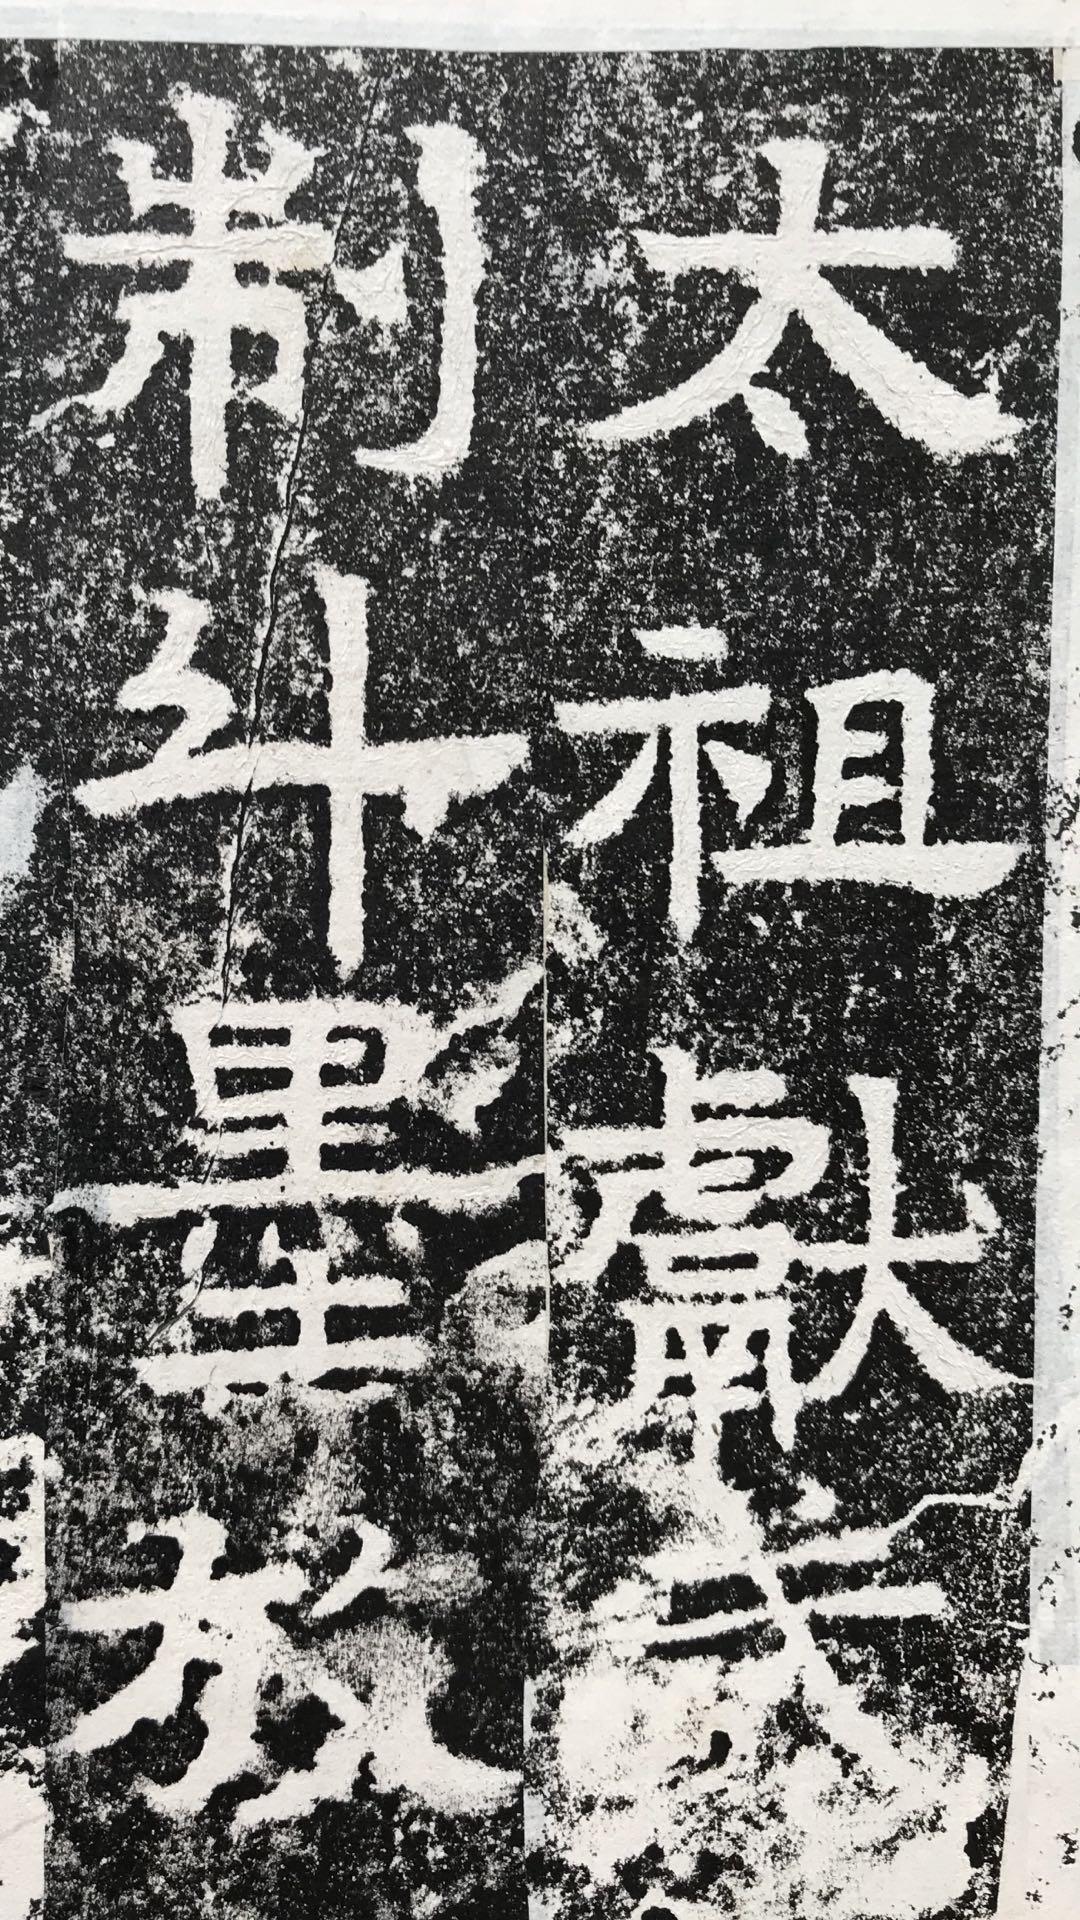 太祖獻武
制斗墨放